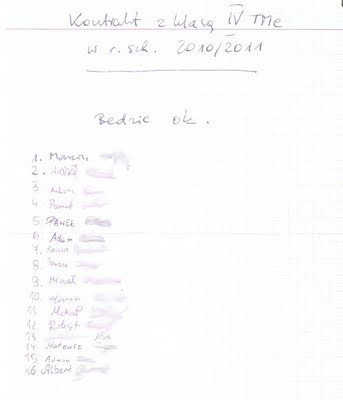 Kontrakt z klasą IV TMe
w r. sch. 2010/2011
Bedzie ok.
1. Marcin
2. Michał
3
4 Paweł
5 PAWEŁ
6 Adam
7.
8.
9. Michał
10.
11 Michał
12 Robert
13
14 Mateusz
15 Adam
16 Albert